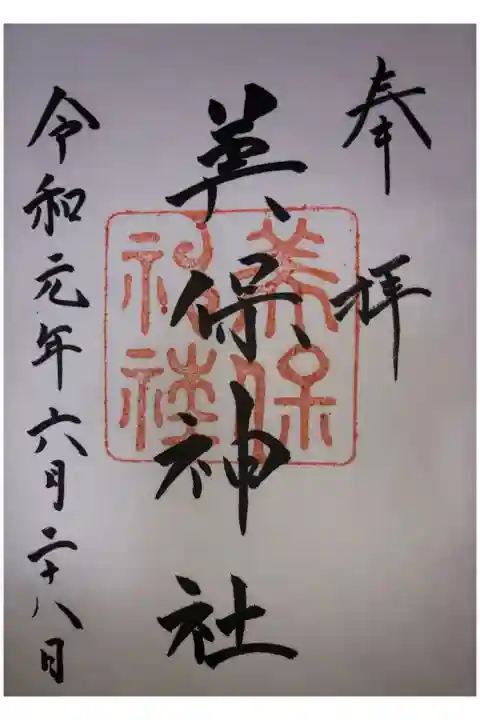 奉拝
美保神社
美保
神社
令和元年六月二十八日